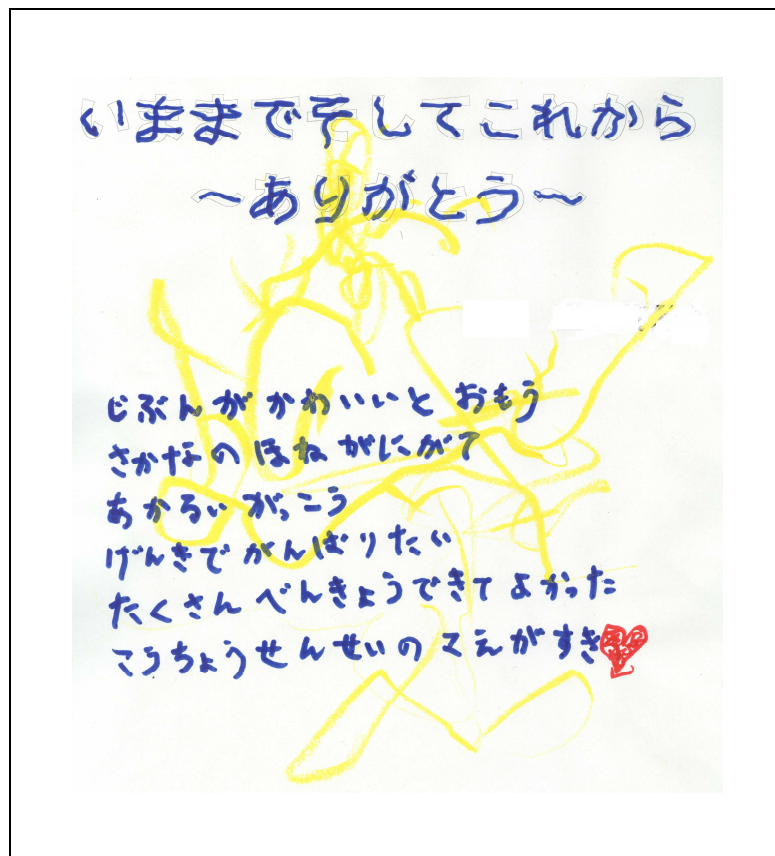 いままでそしてこれから
～ありがとう～
じぶんがかわいいと おもう
さかなのほねがにがて
あかるいがっこう
げんきでがんばりたい
たくさんべんきょうできてよかった
こうちょうせんせいのこえがすき